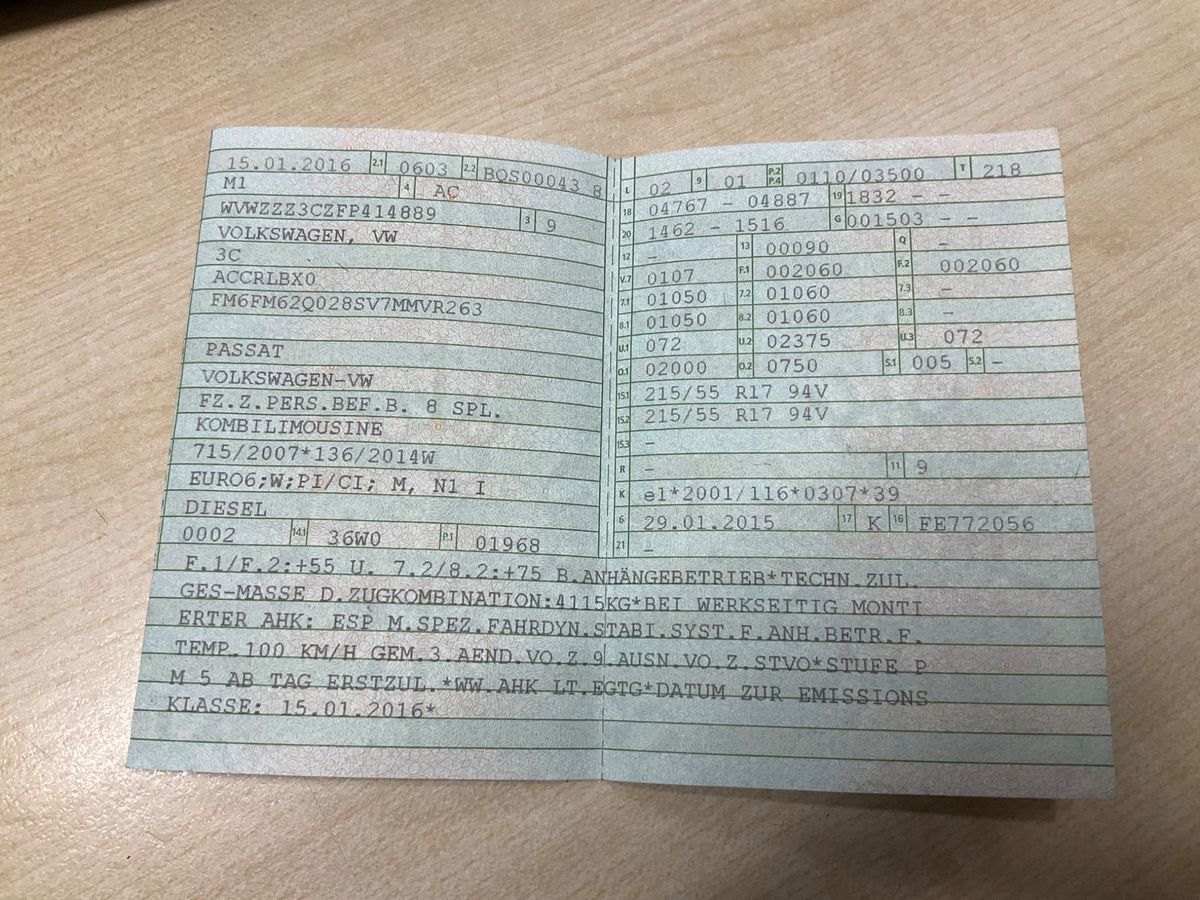 15.01.2016 2.1 0603 2.2 BQS00043 8
M1 4 AC
WVWZZZ3CZFP414889 3 9
VOLKSWAGEN, VW
3C
ACCRLBX0
FM6FM62Q028SV7MMVR263
PASSAT
VOLKSWAGEN-VW
FZ.Z.PERS.BEF.B. 8 SPL.
KOMBILIMOUSINE
715/2007*136/2014W
EURO6;W;PI/CI; M, N1 I
DIESEL
0002 14.1 36W0 P.1 01968
L 02 9 01 P.2 P.4 0110/03500 T 218
18 04767 - 04887 19 1832 - -
20 1462 - 1516 G 001503 - -
12 - 13 00090 Q -
V.7 0107 F.1 002060 F.2 002060
7.1 01050 7.2 01060 7.3 -
8.1 01050 8.2 01060 8.3 -
U.1 072 U.2 02375 U.3 072
O.1 02000 O.2 0750 S.1 005 S.2 -
15.1 215/55 R17 94V
15.2 215/55 R17 94V
15.3 -
R - 11 9 /
K e1*2001/116*0307*39
6 29.01.2015 17 K 16 FE772056
21 -
F.1/F.2:+55 U. 7.2/8.2:+75 B.ANHÄNGEBETRIEB*TECHN.ZUL.
GES-MASSE D.ZUGKOMBINATION:4115KG*BEI WERKSEITIG MONTI
ERTER AHK: ESP M.SPEZ.FAHRDYN.STABI.SYST.F.ANH.BETR.F.
TEMP.100 KM/H GEM.3.AEND.VO.Z.9.AUSN.VO.Z.STVO*STUFE P
M 5 AB TAG ERSTZUL.*WW.AHK LT.EGTG*DATUM ZUR EMISSIONS
KLASSE: 15.01.2016*